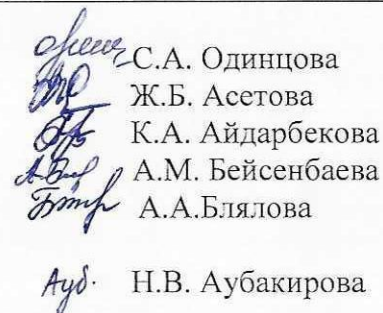 С.А. Одинцова
Ж.Б. Асетова
К.А. Айдарбекова
А.М. Бейсенбаева
А.А.Блялова
Ауб. Н.В. Аубакирова